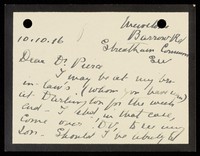 Burrow Rd
Streatham Common
SW
10.10.16
Dear Dr Piera
I may be at my bro
in-law's (whom you know)
at Darlington for the week
end. I shd, in that case,
come over "D.V." to see my
Son. Should I be likely to